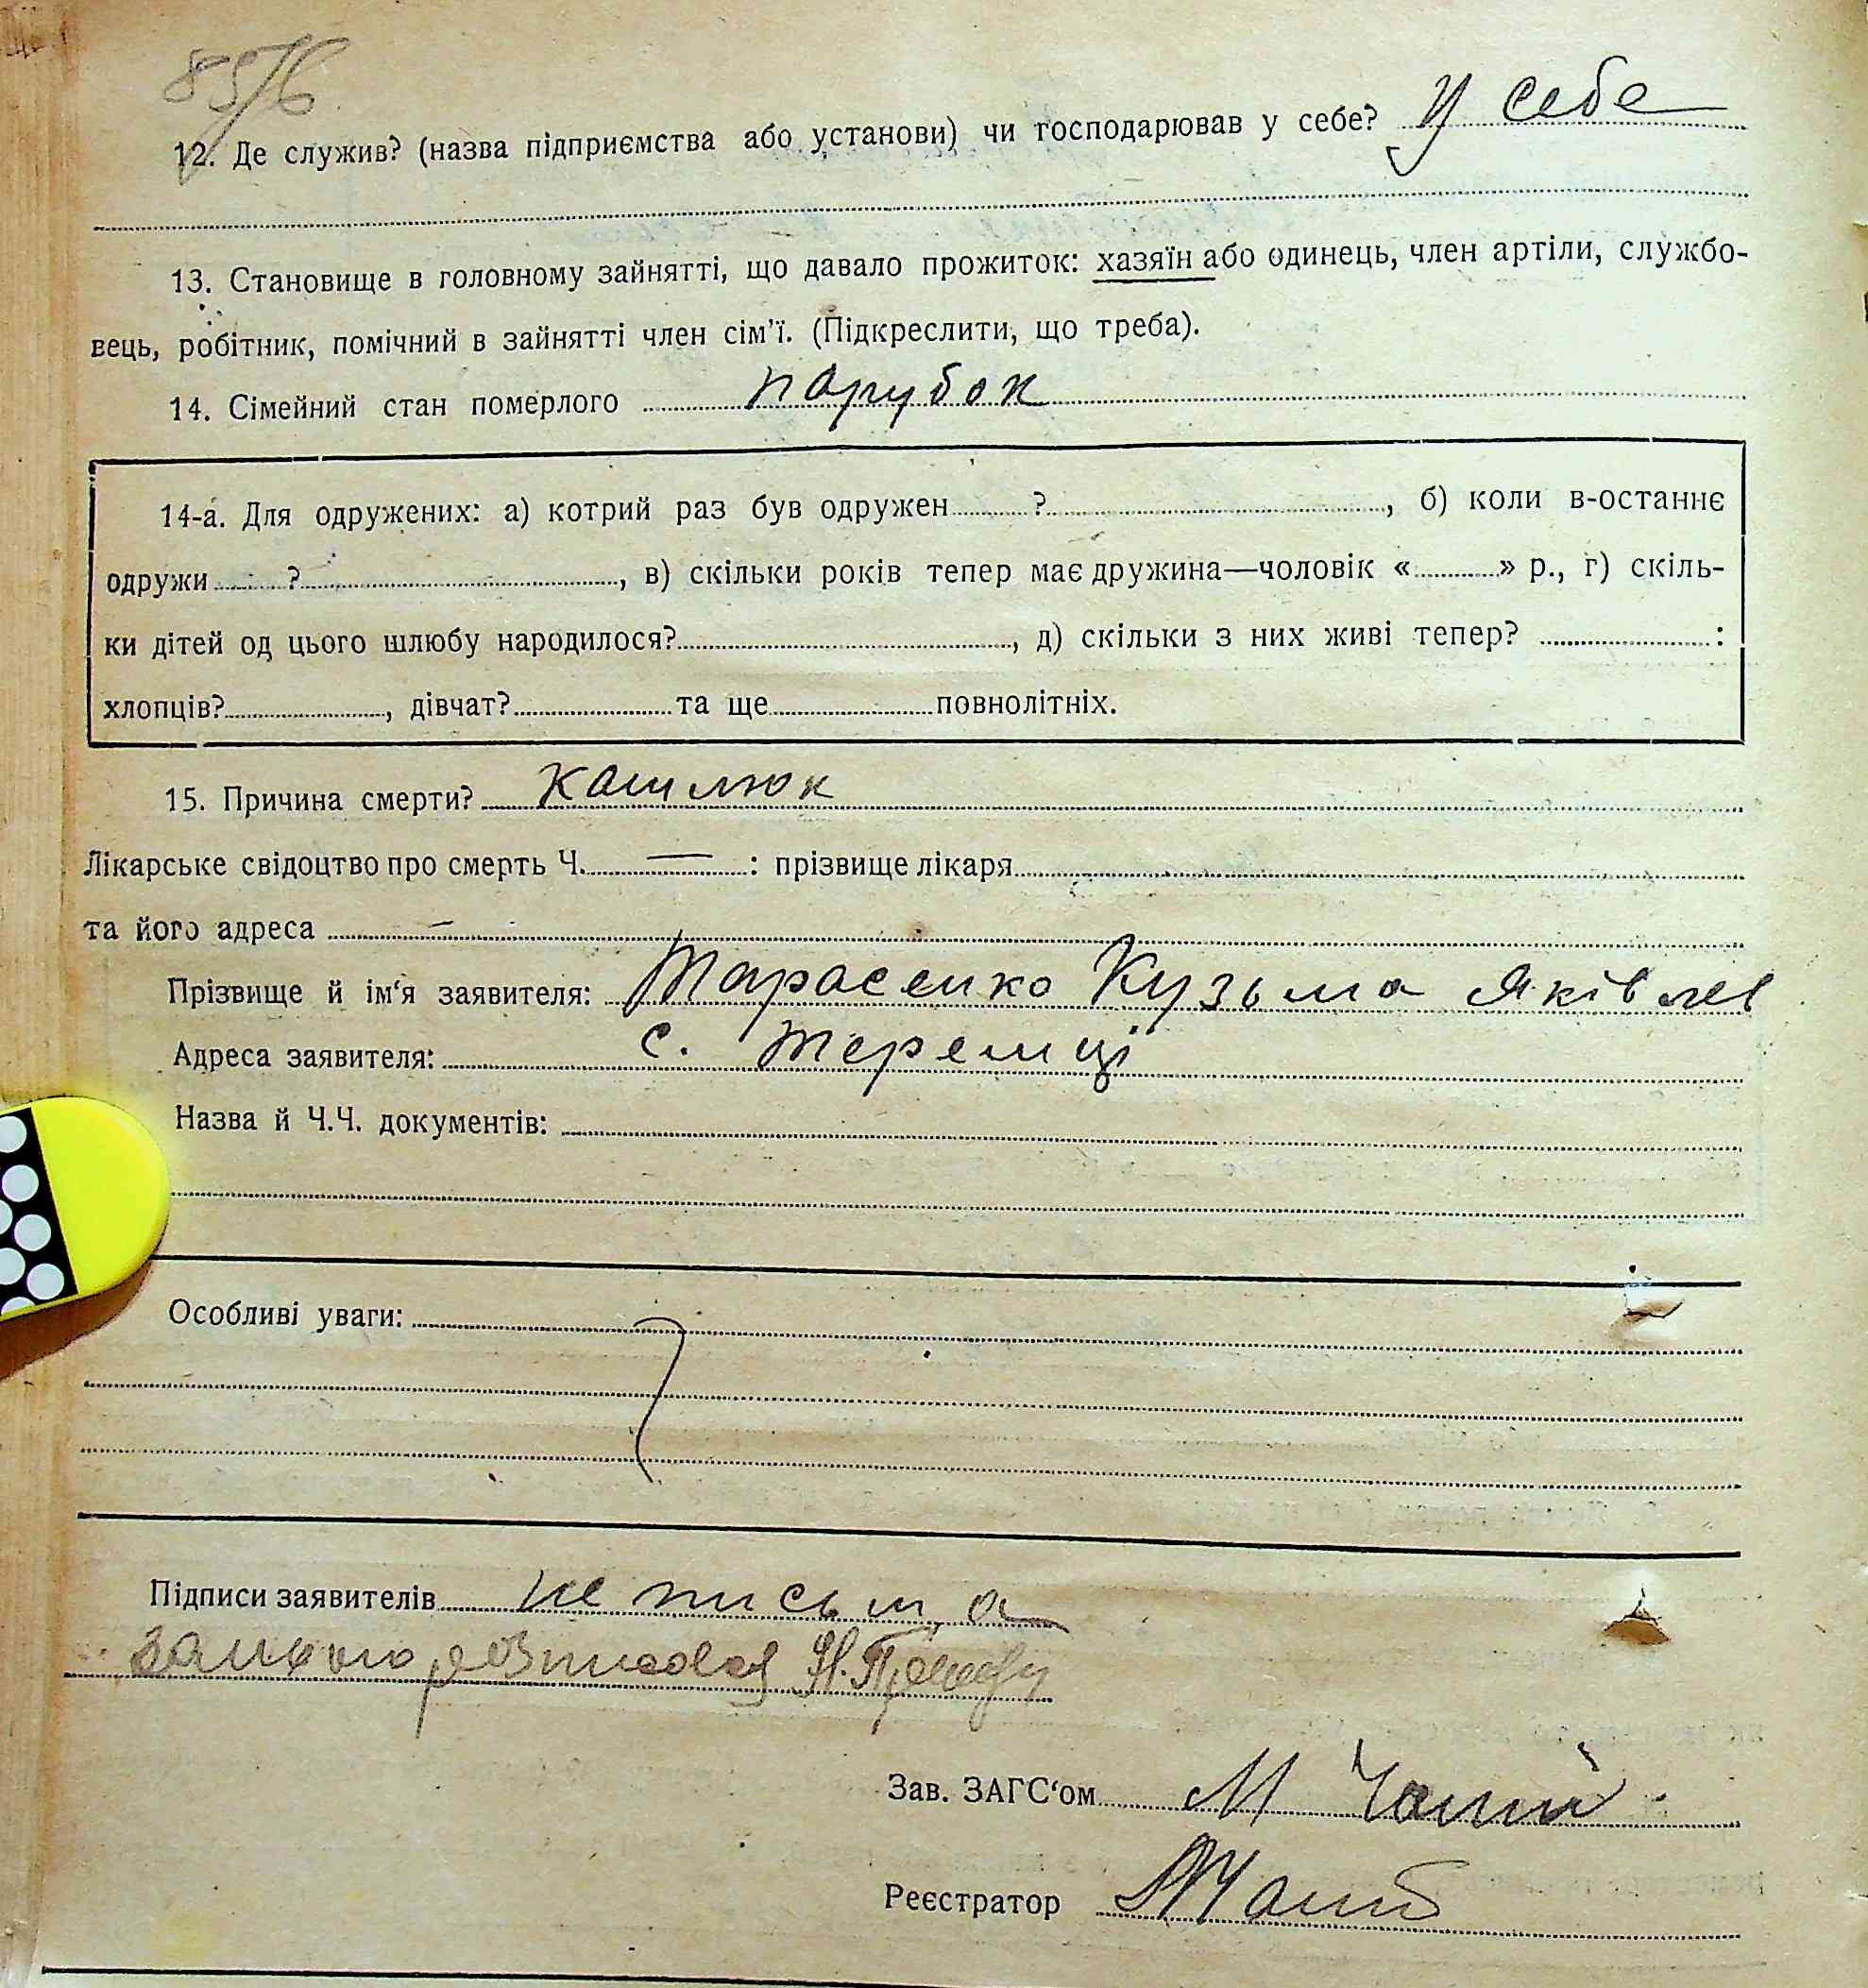 85/6
12. Де служив? (назва підприємства або установи) чи господарював у себе? У себе
13. Становище в головному зайнятті, що давало прожиток: хазяїн або одинець, член артіли, службо-
вець, робітник, помічний в зайнятті член сім'ї. (Підкреслити, що треба).
14. Сімейний стан померлого парубок
14-а. Для одружених: а) котрий раз був одружен ? , б) коли в-останнє
одружи ? , в) скільки років тепер має дружина—чоловік « » р., г) скіль-
ки дітей од цього шлюбу народилося? , д) скільки з них живі тепер? :
хлопців? , дівчат? та ще повнолітніх.
15. Причина смерти? кашлюк
Лікарське свідоцтво про смерть Ч. — : прізвище лікаря
та його адреса —
Прізвище й ім'я заявителя: Тарасенко Кузьма Яківлев
Адреса заявителя: с. Теремці
Назва й Ч.Ч. документів:
Особливі уваги:
Підписи заявителів не письма
за нього розписався
Зав. ЗАГС'ом М
Реєстратор